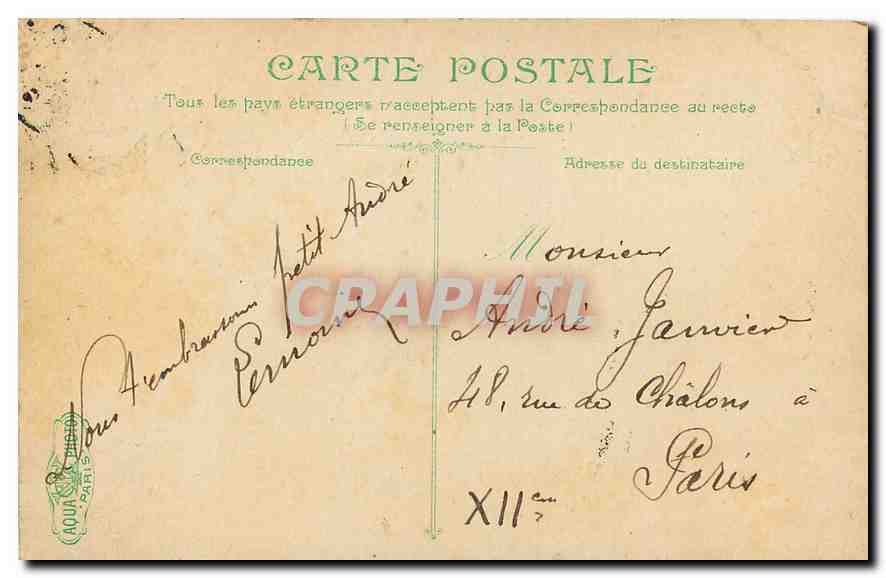 CARTE POSTALE
Tous les pays étrangers n'acceptent pas la Correspondance au recto
(Se renseigner à la Poste)
Correspondance
Adresse du destinataire
Nous t'embrassons petit André
Lemoine
Monsieur
André Janvier
48, rue de Châlons à
Paris
XIIeme
AQUA PHOTO
PARIS
CPAPHIL